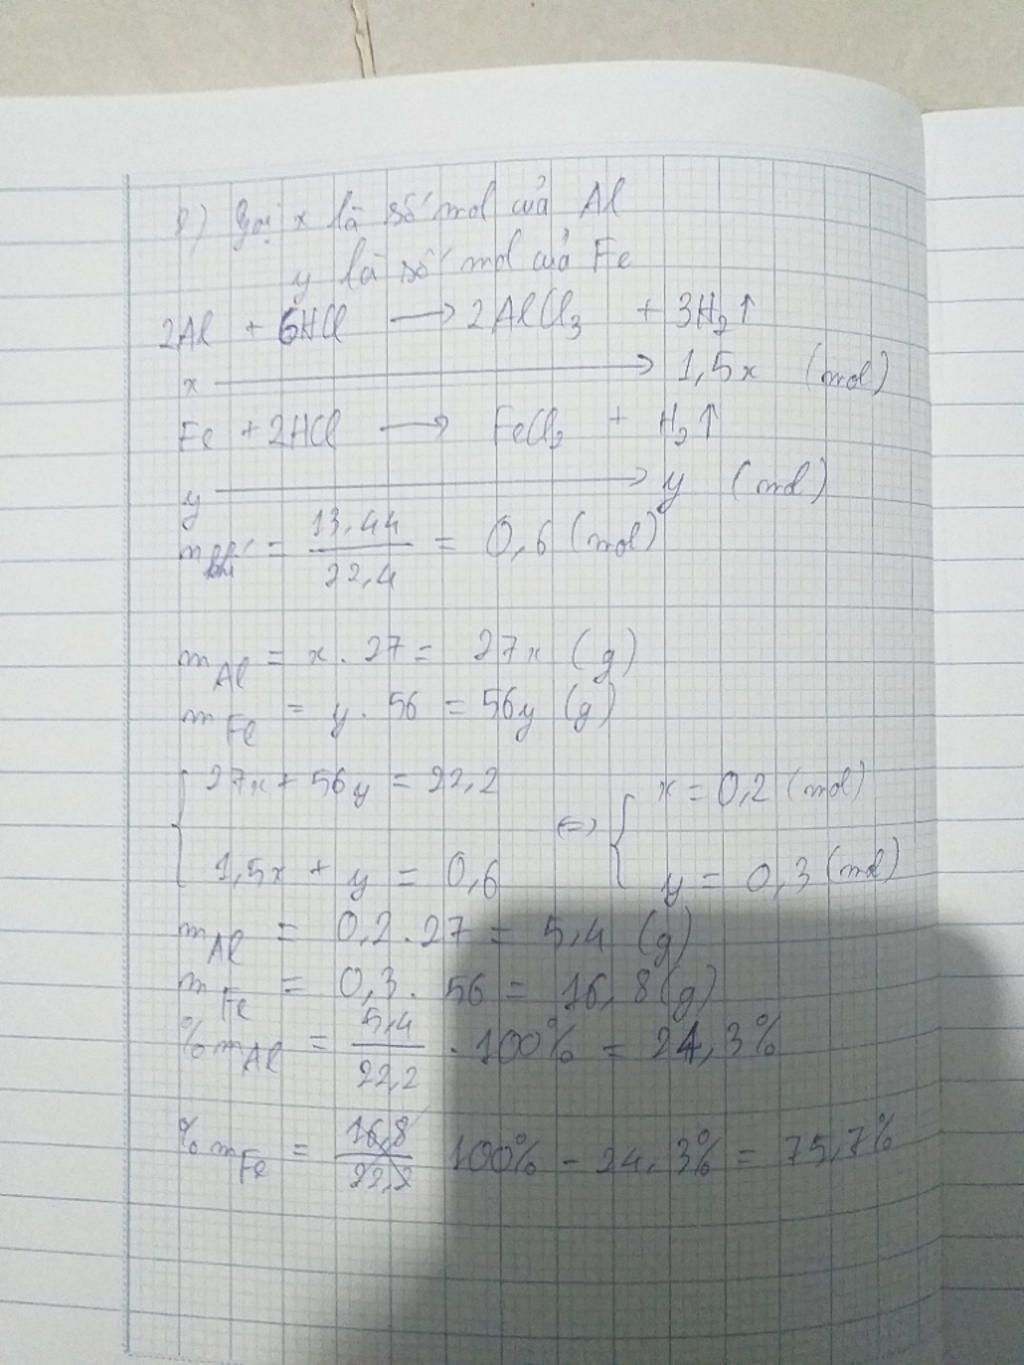 8) Gọi x là số mol của Al
y là số mol của Fe
2Al + 6HCl → 2AlCl₃ + 3H₂↑
x → 1,5x (mol)
Fe + 2HCl → FeCl₂ + H₂↑
y → y (mol)
n khí = 13,44 / 22,4 = 0,6 (mol)
m Al = x . 27 = 27x (g)
m Fe = y . 56 = 56y (g)
{ 27x + 56y = 22,2 ⇔ { x = 0,2 (mol)
1,5x + y = 0,6 y = 0,3 (mol)
m Al = 0,2 . 27 = 5,4 (g)
m Fe = 0,3 . 56 = 16,8 (g)
% m Al = 5,4 / 22,2 . 100% = 24,3%
% m Fe = 16,8 / 22,2 100% - 24,3% = 75,7%